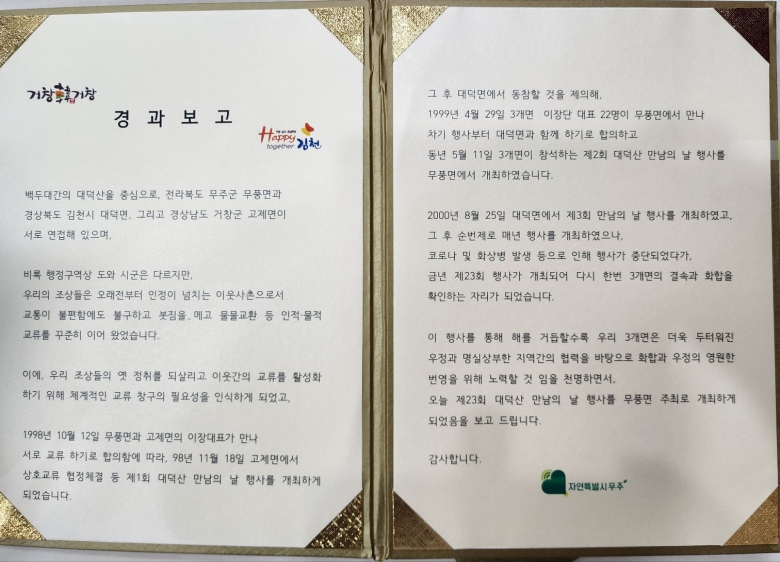 거창韓거창
경 과 보 고
Happy
together 김천
백두대간의 대덕산을 중심으로, 전라북도 무주군 무풍면과
경상북도 김천시 대덕면, 그리고 경상남도 거창군 고제면이
서로 연접해 있으며,
비록 행정구역상 도와 시군은 다르지만,
우리의 조상들은 오래전부터 인정이 넘치는 이웃사촌으로서
교통이 불편함에도 불구하고 봇짐을 메고 물물교환 등 인적·물적
교류를 꾸준히 이어 왔었습니다.
이에, 우리 조상들의 옛 정취를 되살리고 이웃간의 교류를 활성화
하기 위해 체계적인 교류 창구의 필요성을 인식하게 되었고,
1998년 10월 12일 무풍면과 고제면의 이장대표가 만나
서로 교류 하기로 합의함에 따라, 98년 11월 18일 고제면에서
상호교류 협정체결 등 제1회 대덕산 만남의 날 행사를 개최하게
되었습니다.
그 후 대덕면에서 동참할 것을 제의해,
1999년 4월 29일 3개면 이장단 대표 22명이 무풍면에서 만나
차기 행사부터 대덕면과 함께 하기로 합의하고
동년 5월 11일 3개면이 참석하는 제2회 대덕산 만남의 날 행사를
무풍면에서 개최하였습니다.
2000년 8월 25일 대덕면에서 제3회 만남의 날 행사를 개최하였고,
그 후 순번제로 매년 행사를 개최하였으나,
코로나 및 화상병 발생 등으로 인해 행사가 중단되었다가,
금년 제23회 행사가 개최되어 다시 한번 3개면의 결속과 화합을
확인하는 자리가 되었습니다.
이 행사를 통해 해를 거듭할수록 우리 3개면은 더욱 두터워진
우정과 명실상부한 지역간의 협력을 바탕으로 화합과 우정의 영원한
번영을 위해 노력할 것 임을 천명하면서,
오늘 제23회 대덕산 만남의 날 행사를 무풍면 주최로 개최하게
되었음을 보고 드립니다.
감사합니다.
자연특별시 무주